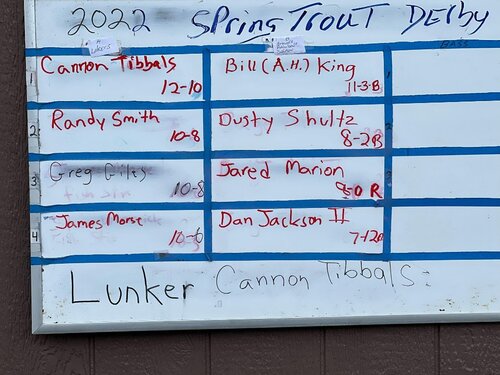 2022 Spring Trout Derby
1 Cannon Tibbals 12-10
Bill (A.H.) King 11-3-B
2 Randy Smith 10-8
Dusty Shultz 8-2B
3 Greg Giles 10-8
Jared Marion R
4 James Morse 10-6
Dan Jackson II 7-12B
Lunker Cannon Tibbals: